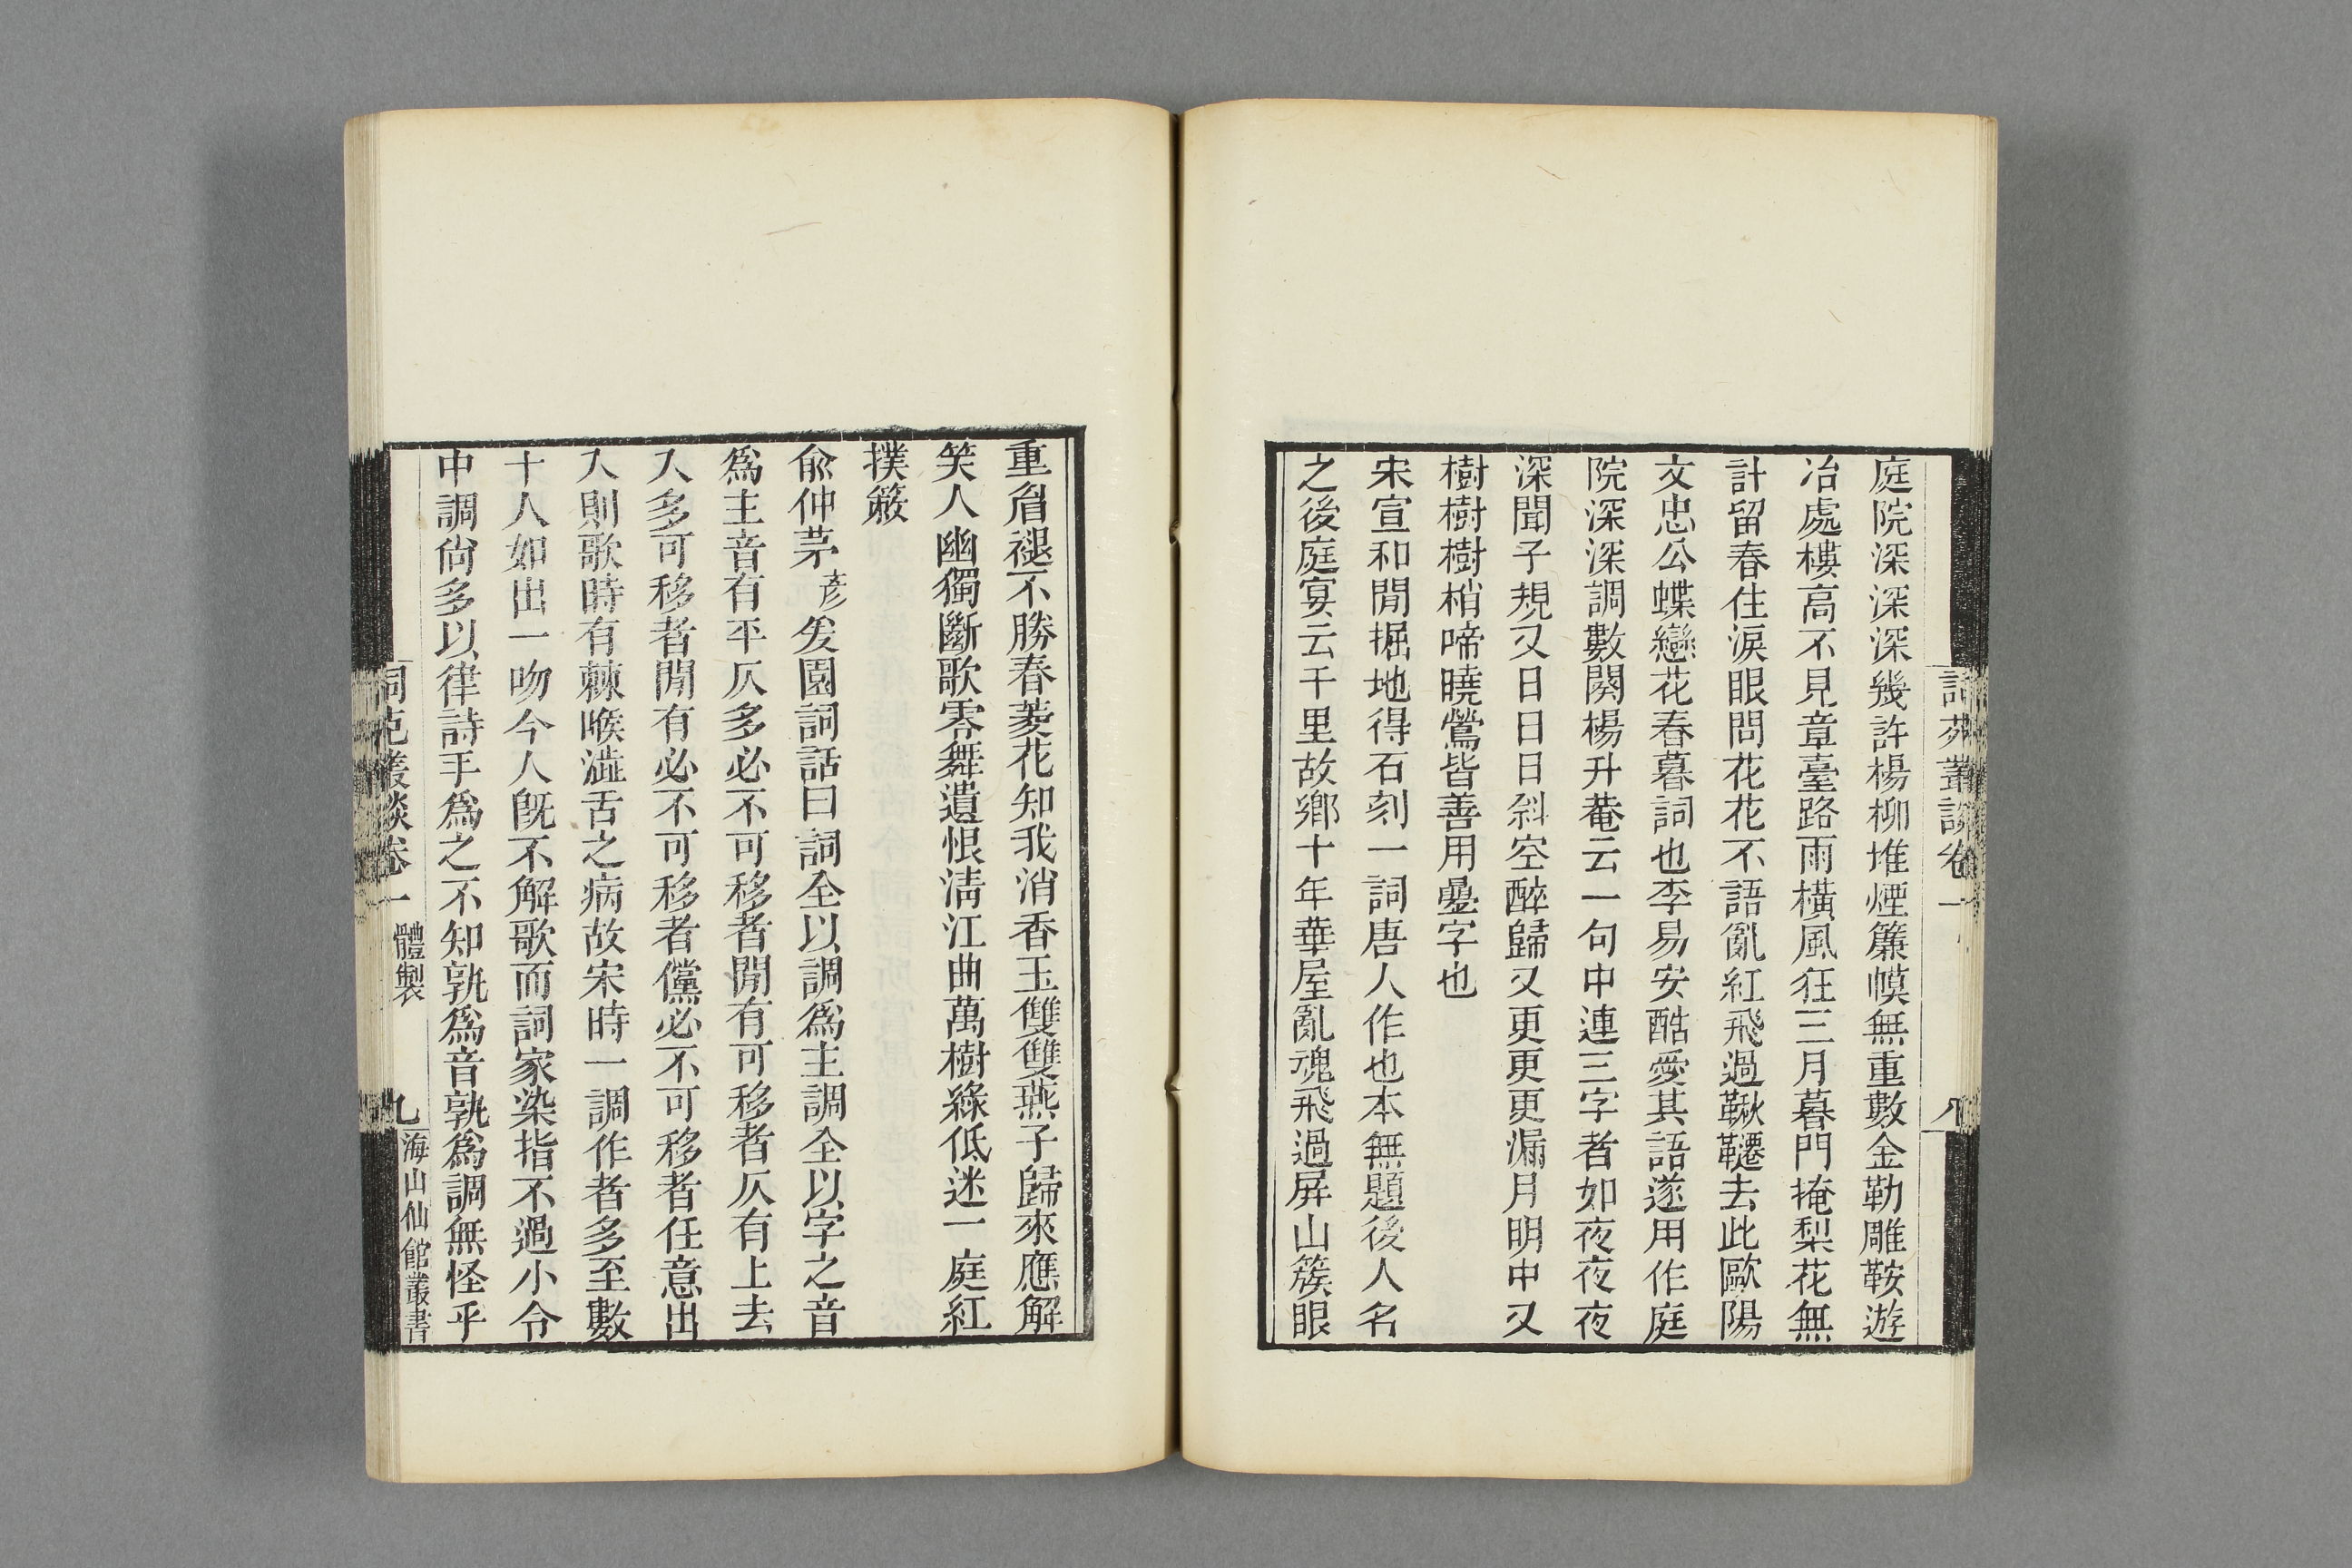 庭院深深深幾許楊柳堆煙簾幙無重數金勒雕鞍遊
冶處樓高不見章臺路雨橫風狂三月暮門掩梨花無
計留春住淚眼問花花不語亂紅飛過鞦韆去此歐陽
文忠公蝶戀花春暮詞也李易安酷愛其語遂用作庭
院深深調數闋楊升菴云一句中連三字者如夜夜夜
深聞子規又日日日斜空醉歸又更更更漏月明中又
樹樹樹梢啼曉鶯皆善用疊字也
宋宣和閒掘地得石刻一詞唐人作也本無題後人名
之後庭宴云千里故鄉十年華屋亂魂飛過屏山簇眼
詞苑叢談卷一
八
重眉褪不勝春菱花知我消香玉雙雙燕子歸來應解
笑人幽獨斷歌零舞遺恨淸江曲萬樹綠低迷一庭紅
撲簌
兪仲茅彥爰園詞話曰詞全以調爲主調全以字之音
爲主音有平仄多必不可移者閒有可移者仄有上去
入多可移者閒有必不可移者儻必不可移者任意出
入則歌時有棘喉澁舌之病故宋時一調作者多至數
十人如出一吻今人旣不解歌而詞家染指不過小令
中調尙多以律詩手爲之不知孰爲音孰爲調無怪乎
詞苑叢談卷一
體製
九
海山仙館叢書